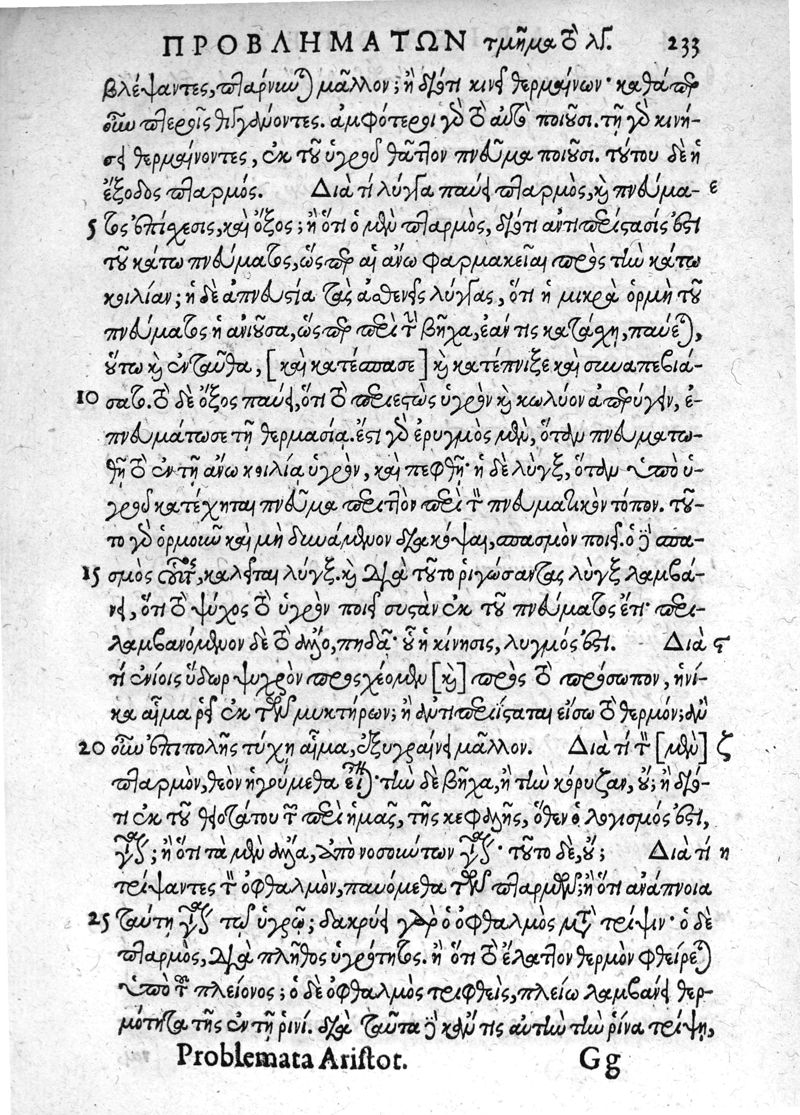 ΠΡΟΒΛΗΜΑΤΩΝ τμῆμα τὸ λγ. 233
βλέψαντες, πτάρνυνται μᾶλλον; ἢ διότι κινεῖ θερμαίνων· καθάπερ
οἷον πτεροῖς θιγγάνοντες. ἀμφότεροι γὰρ τὸ αὐτὸ ποιοῦσι. τῇ γὰρ κινή-
σει θερμαίνοντες, ἐκ τοῦ ὑγροῦ θᾶττον πνεῦμα ποιοῦσι. τούτου δὲ ἡ
ἔξοδος πταρμός. Διὰ τί λύγγα παύει πταρμὸς, καὶ πνεύμα- ε
5 τος ἐπίσχεσις, καὶ ὄξος; ἢ ὅτι ὁ μὲν πταρμὸς, διότι ἀντιπερίστασίς ἐστι
τοῦ κάτω πνεύματος, ὥσπερ αἱ ἄνω φαρμακεῖαι πρὸς τὴν κάτω
κοιλίαν; ἡ δὲ ἀπνευστία τὰς ἀσθενεῖς λύγγας, ὅτι ἡ μικρὰ ὁρμὴ τοῦ
πνεύματος ἡ ἀνιοῦσα, ὥσπερ περὶ τὸν βῆχα, ἐάν τις κατάσχῃ, παύεται,
οὕτω καὶ ἐνταῦθα, [καὶ κατέσπασε] καὶ κατέπνιξε καὶ συναπεβιά-
10 σατο. τὸ δὲ ὄξος παύει, ὅτι τὸ περιεστὼς ὑγρὸν καὶ κωλύον ἀπερύγειν, ἐ-
πνευμάτωσε τῇ θερμασίᾳ. ἔστι γὰρ ἐρυγμὸς μὲν, ὅταν πνευματω-
θῇ τὸ ἐν τῇ ἄνω κοιλίᾳ ὑγρὸν, καὶ πεφθῇ· ἡ δὲ λὺγξ, ὅταν ὑπὸ ὑ-
γροῦ κατέχηται πνεῦμα περιττὸν περὶ τὸν πνευματικὸν τόπον. τοῦ-
το γὰρ ὁρμοῦν καὶ μὴ δυνάμενον διακόψαι, σπασμὸν ποιεῖ. ὁ δὲ σπα-
15 σμὸς οὗτος, καλεῖται λύγξ. καὶ διὰ τοῦτο ῥιγώσαντας λὺγξ λαμβά-
νει, ὅτι τὸ ψύχος τὸ ὑγρὸν ποιεῖ συστὰν ἐκ τοῦ πνεύματος ἔτι· περι-
λαμβανόμενον δὲ τὸ ἄλλο, πηδᾷ· οὗ ἡ κίνησις, λυγμός ἐστι. Διὰ ϛ
τί ἐνίοις ὕδωρ ψυχρὸν προσχέομεν [καὶ] πρὸς τὸ πρόσωπον, ἡνί-
κα αἷμα ῥεῖ ἐκ τῶν μυκτήρων; ἢ ἀντιπεριΐσταται εἴσω τὸ θερμόν; ἂν
20 οὖν ἐπιπολῆς τύχῃ αἷμα, ἐξυγραίνει μᾶλλον. Διὰ τί τὸν [μὲν] ζ
πταρμὸν, θεὸν ἡγούμεθα εἶναι· τὴν δὲ βῆχα, ἢ τὴν κόρυζαν, οὔ; ἢ διό-
τι ἐκ τοῦ θειοτάτου τῶν περὶ ἡμᾶς, τῆς κεφαλῆς, ὅθεν ὁ λογισμός ἐστι,
γίνεται; ἢ ὅτι τὰ μὲν ἄλλα, ἀπὸ νοσούντων γίνεται· τοῦτο δὲ, οὔ; Διὰ τί η
τρίψαντες τὸν ὀφθαλμὸν, παυόμεθα τῶν πταρμῶν; ἢ ὅτι ἀνάπνοια
25 ταύτῃ γίνεται τῷ ὑγρῷ; δακρύει γὰρ ὁ ὀφθαλμὸς μετὰ τρίψιν· ὁ δὲ
πταρμὸς, διὰ πλῆθος ὑγρότητος. ἢ ὅτι τὸ ἔλαττον θερμὸν φθείρεται
ὑπὸ τοῦ πλείονος; ὁ δὲ ὀφθαλμὸς τριφθεὶς, πλείω λαμβάνει θερ-
μότητα τῆς ἐν τῇ ῥινί. διὰ ταῦτα δὲ κἄν τις αὐτὴν τὴν ῥῖνα τρίψῃ,
Problemata Aristot. Gg